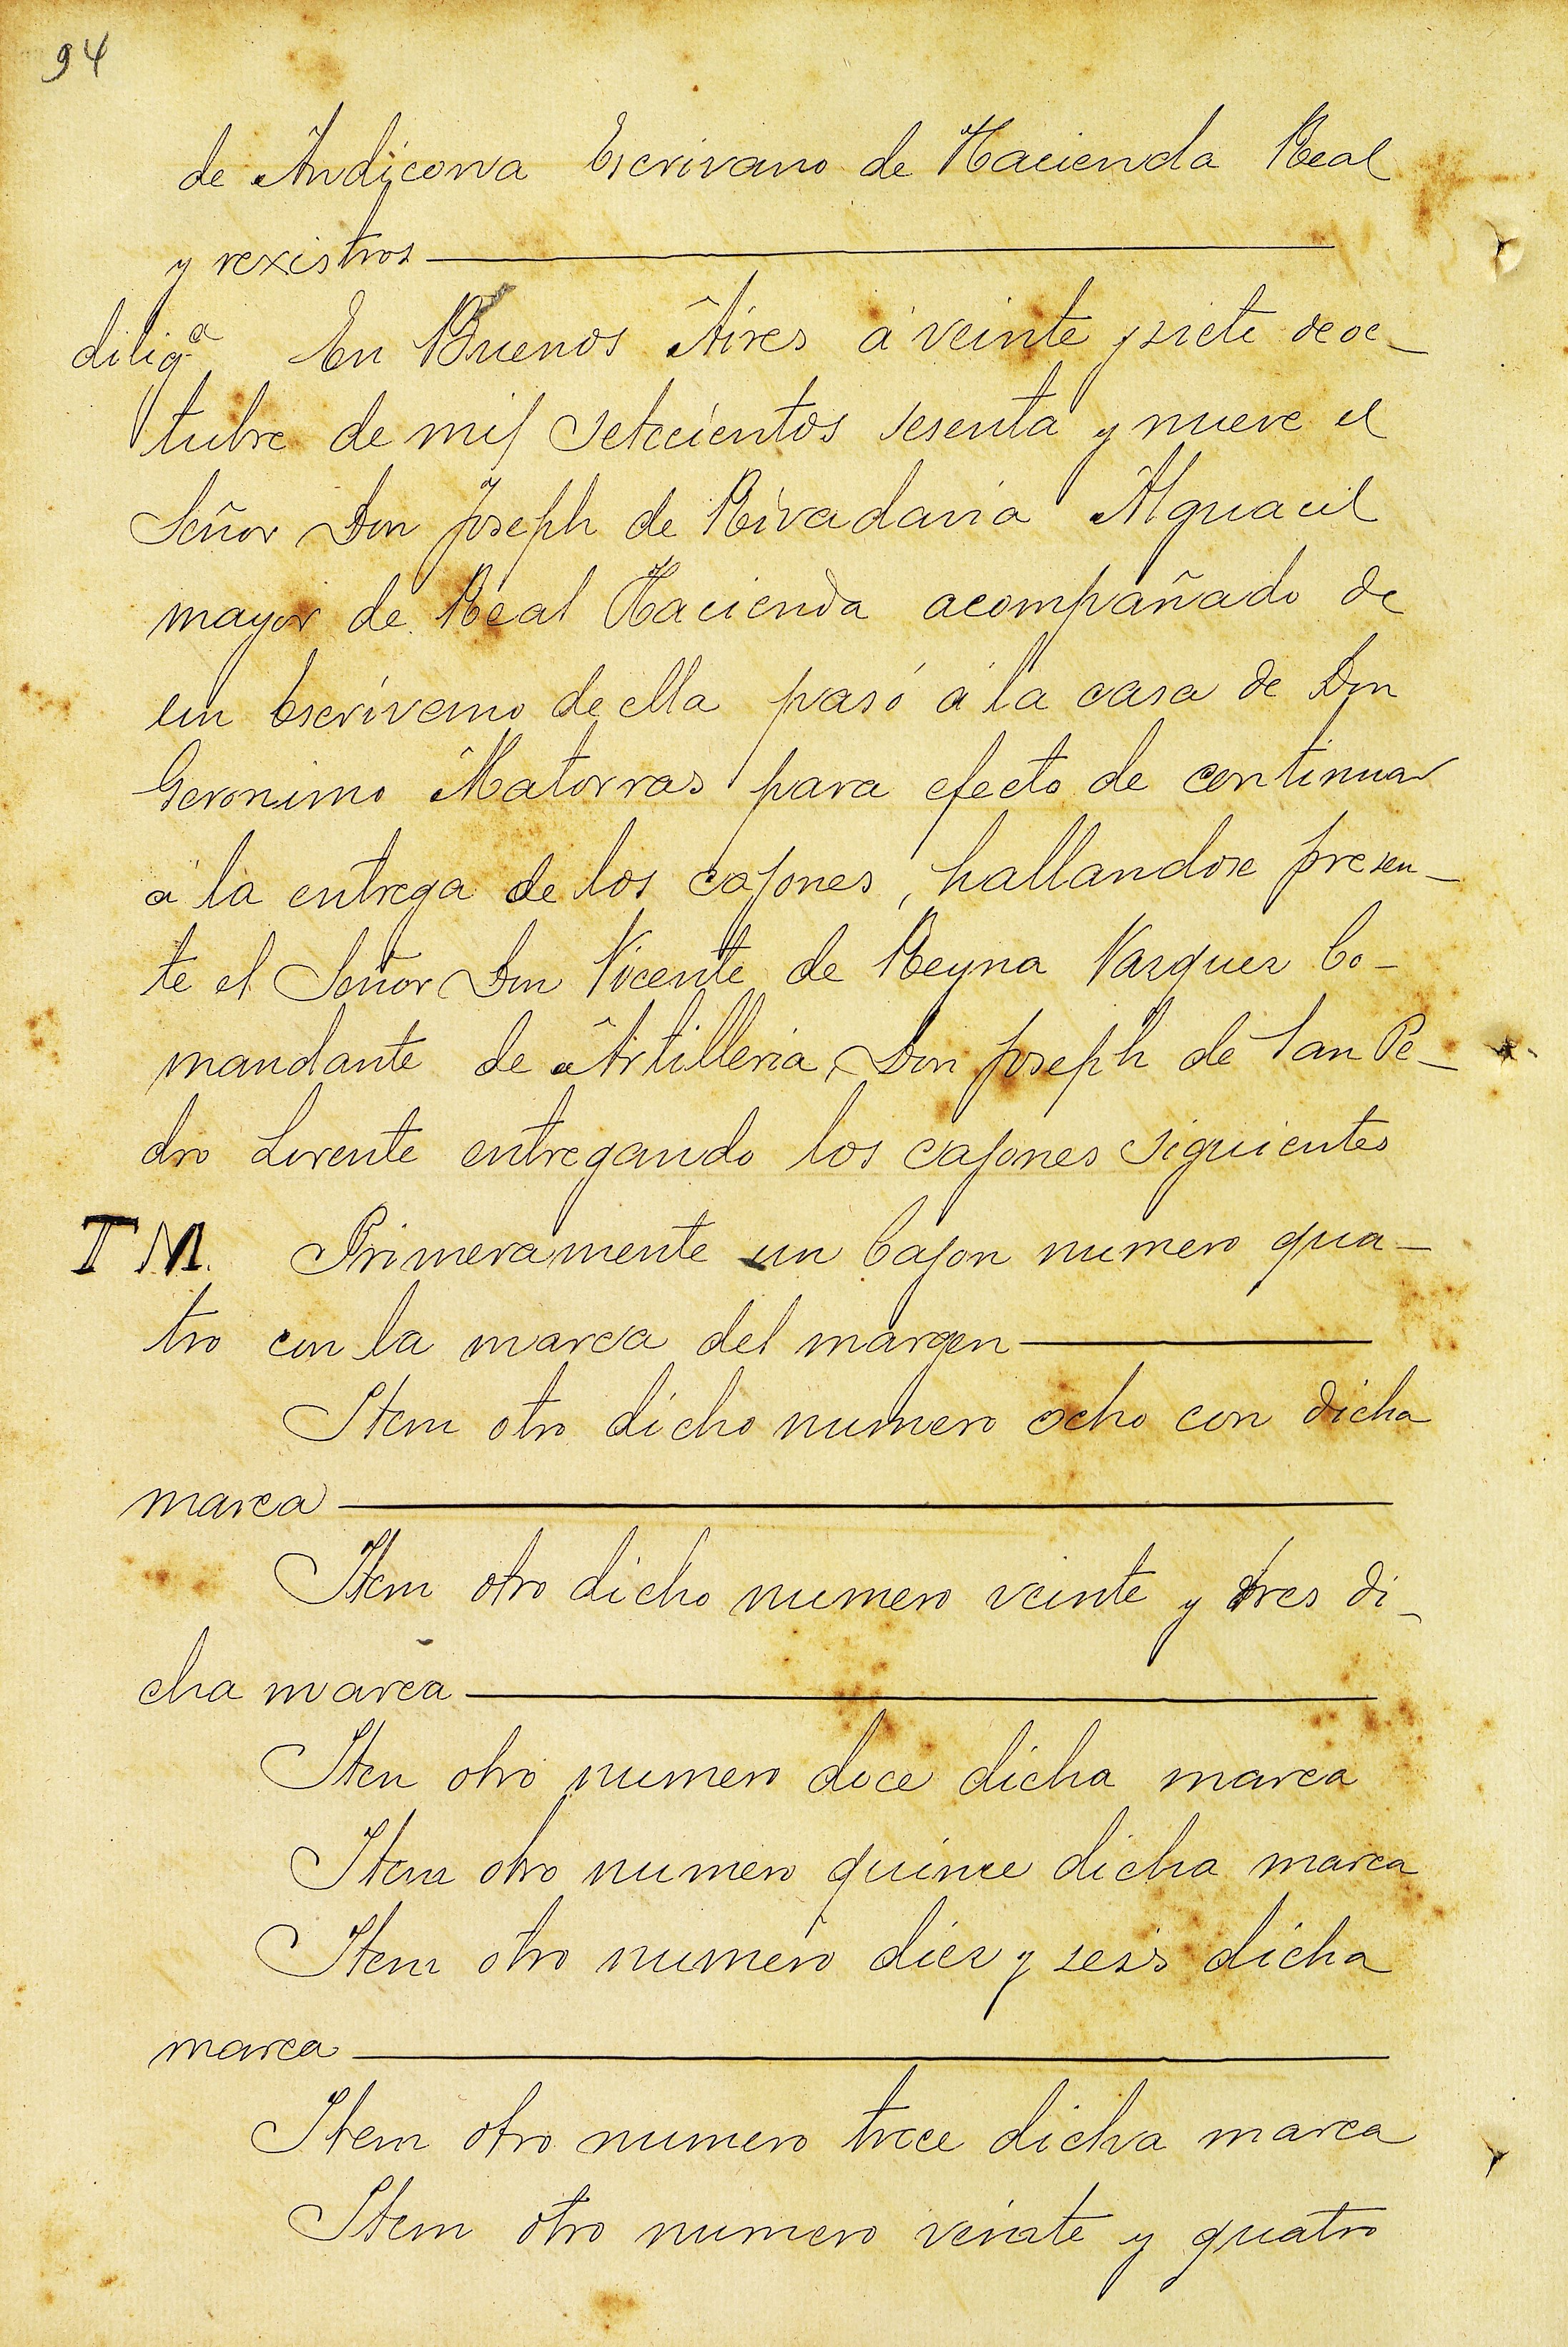 94
de Andicona Escrivano de Hacienda Real
y rexistros
dilig.ª En Buenos Aires á veinte y siete de oc-
tubre de mil setecientos sesenta y nueve el
Señor Don Joseph de Rivadavia Alguacil
mayor de Real Hacienda acompañado de
un Escrivano de ella pasó á la casa de Don
Geronimo Matorras para efecto de continuar
a la entrega de los cajones, hallandose presen-
te el Señor Don Vicente de Reyna Vasquez Co-
mandante de Artilleria, Don Joseph de San Pe-
dro Lorente entregando los cajones siguientes
T M. Primeramente un Cajon numero qua-
tro con la marca del margen
Item otro dicho numero ocho con dicha
marca
Item otro dicho numero veinte y tres di-
cha marca
Iten otro numero doce dicha marca
Item otro numero quince dicha marca
Item otro numero diez y seis dicha
marca
Item otro numero trece dicha marca
Item otro numero veinte y quatro